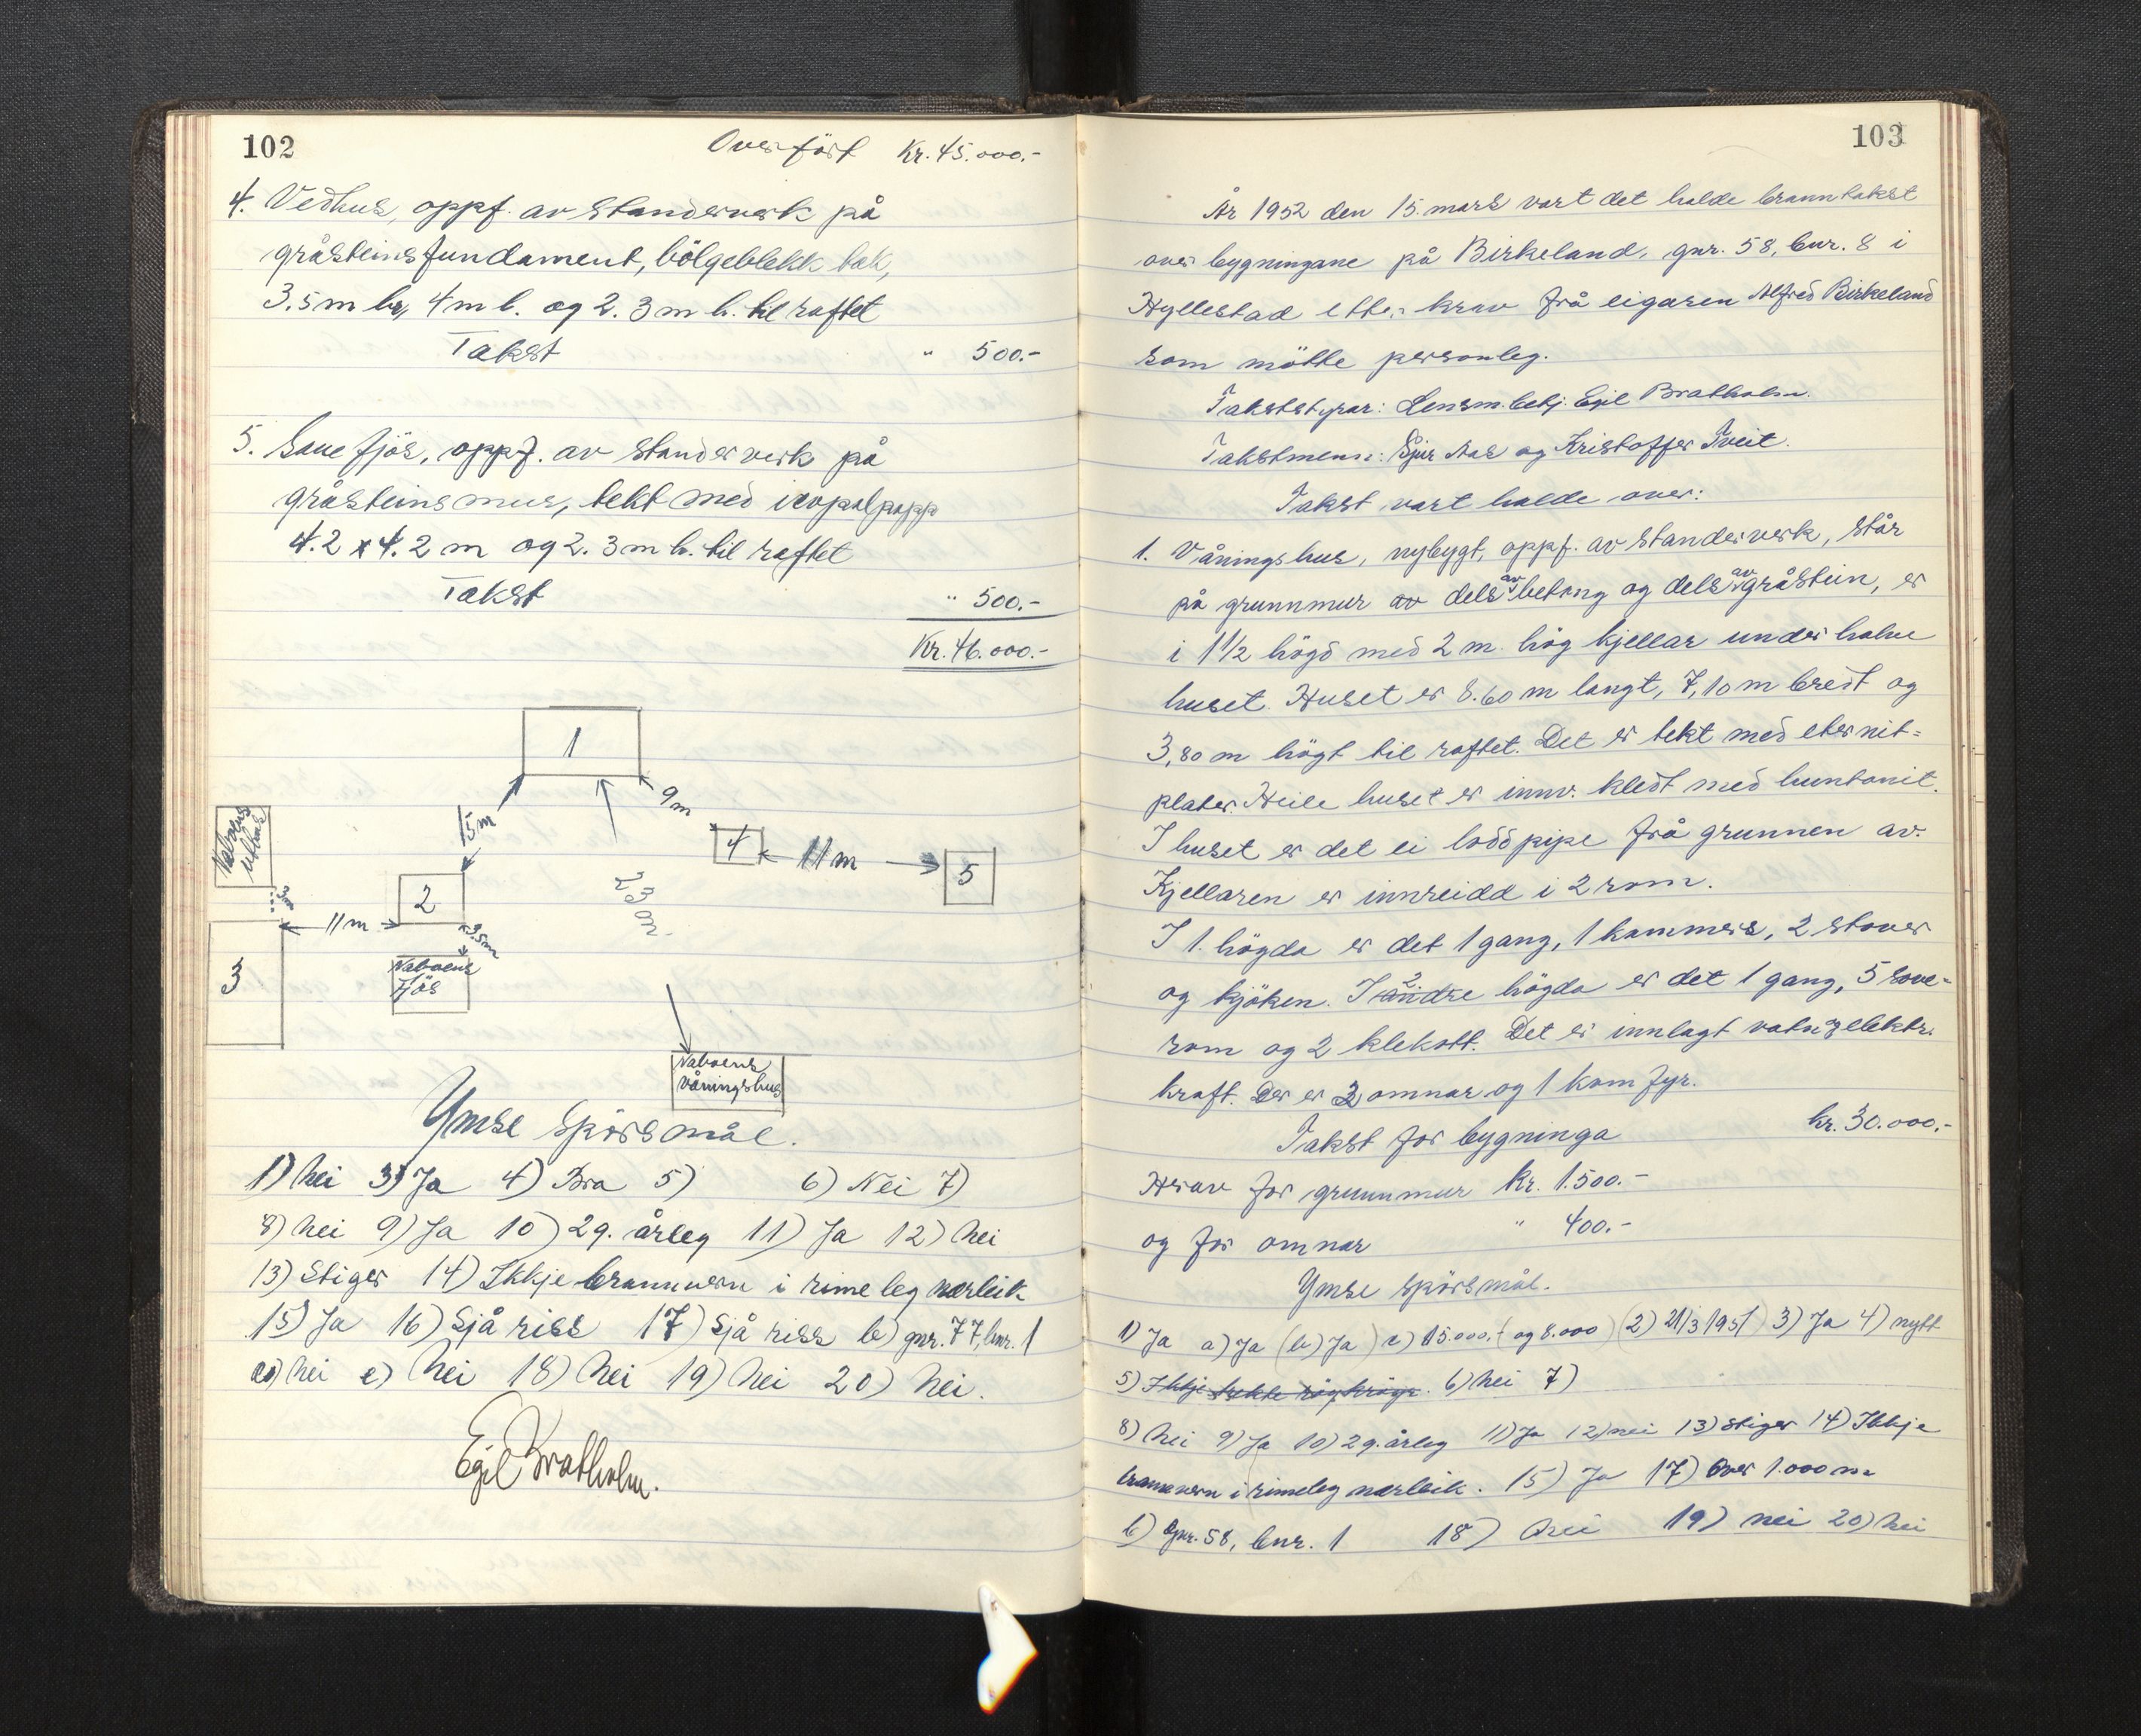 102
Overført Kr. 45.000.-
4. Vedhus, oppf. av standerverk på
gråsteinsfundament, bölgeblekk tak,
3.5 m br, 4 m l. og 2.3 m h. til raftet
Takst " 500.-
5. Sauefjös, oppf. av standerverk på
gråsteinsmur, tekt med icopalpapp
4.2 x 4.2 m og 2.3 m h. til raftet
Takst " 500.-
Kr. 46.000.-
1
15 m
9 m
Naboens
uthus
4
11 m
5
3 m
2
11 m
3.5 m
3
Naboens
fjös
Naboens
våningshus
Ymse spörsmål.
1) Nei 3) Ja 4) Bra 5) 6) Nei 7)
8) Nei 9) Ja 10) 2 g. årleg 11) Ja 12) Nei
13) Stiger 14) Ikkje brannvern i rimeleg nærleik
15) Ja 16) Sjå riss 17) Sjå riss b) gnr. 77, bnr. 1
Nei e) Nei 18) Nei 19) Nei 20) Nei.
Egil Bratholm.
103
År 1952 den 15. mars vart det halde branntakst
over bygningane på Birkeland, gnr. 58, bnr. 8 i
Hyllestad etter krav frå eigaren Alfred Birkeland
som mötte personleg.
Takststyrar: Lensm.betj. Egil Bratholm.
Takstmenn: Sjur Aas og Kristoffer Tveit.
Takst vart halde over:
1. Våningshus, nybygt, oppf. av standerverk, står
på grunnmur av dels av betong og dels av gråstein, er
i 1 1/2 högd med 2 m. hög kjellar under halve
huset. Huset er 8.60 m langt, 7,10 m bredt og
3,80 m högt til raftet. Det er tekt med eternit-
plater. Heile huset er innv. kledt med huntonit.
I huset er det ei lodd pipe frå grunnen av.
Kjellaren er innreidd i 2 rom.
I 1. högda er det 1 gang, 1 kammers, 2 stover
og kjöken. I andre 2 högda er det 1 gang, 5 sove-
rom og 2 klekott. Det er innlagt vatn og elektr.
kraft. Der er 3 omnar og 1 komfyr.
Takst for bygninga kr. 30.000.-
Herav for grunnmur kr. 1.500.-
og for omnar " 400.-
Ymse spörsmål.
1) Ja a) Ja (b) Ja) c) 15.000.- (og 8.000) (2) 21/3 1951) 3) Ja 4) nytt
5) Ikkje 6) Nei 7)
8) Nei 9) Ja 10) 2 g. årleg 11) Ja 12) nei 13) Stiger 14) Ikkje
brannvern i rimeleg nærleik. 15) Ja 17) Over 1.000 m
b) Gnr. 58, bnr. 1 18) Nei 19) nei 20) Nei